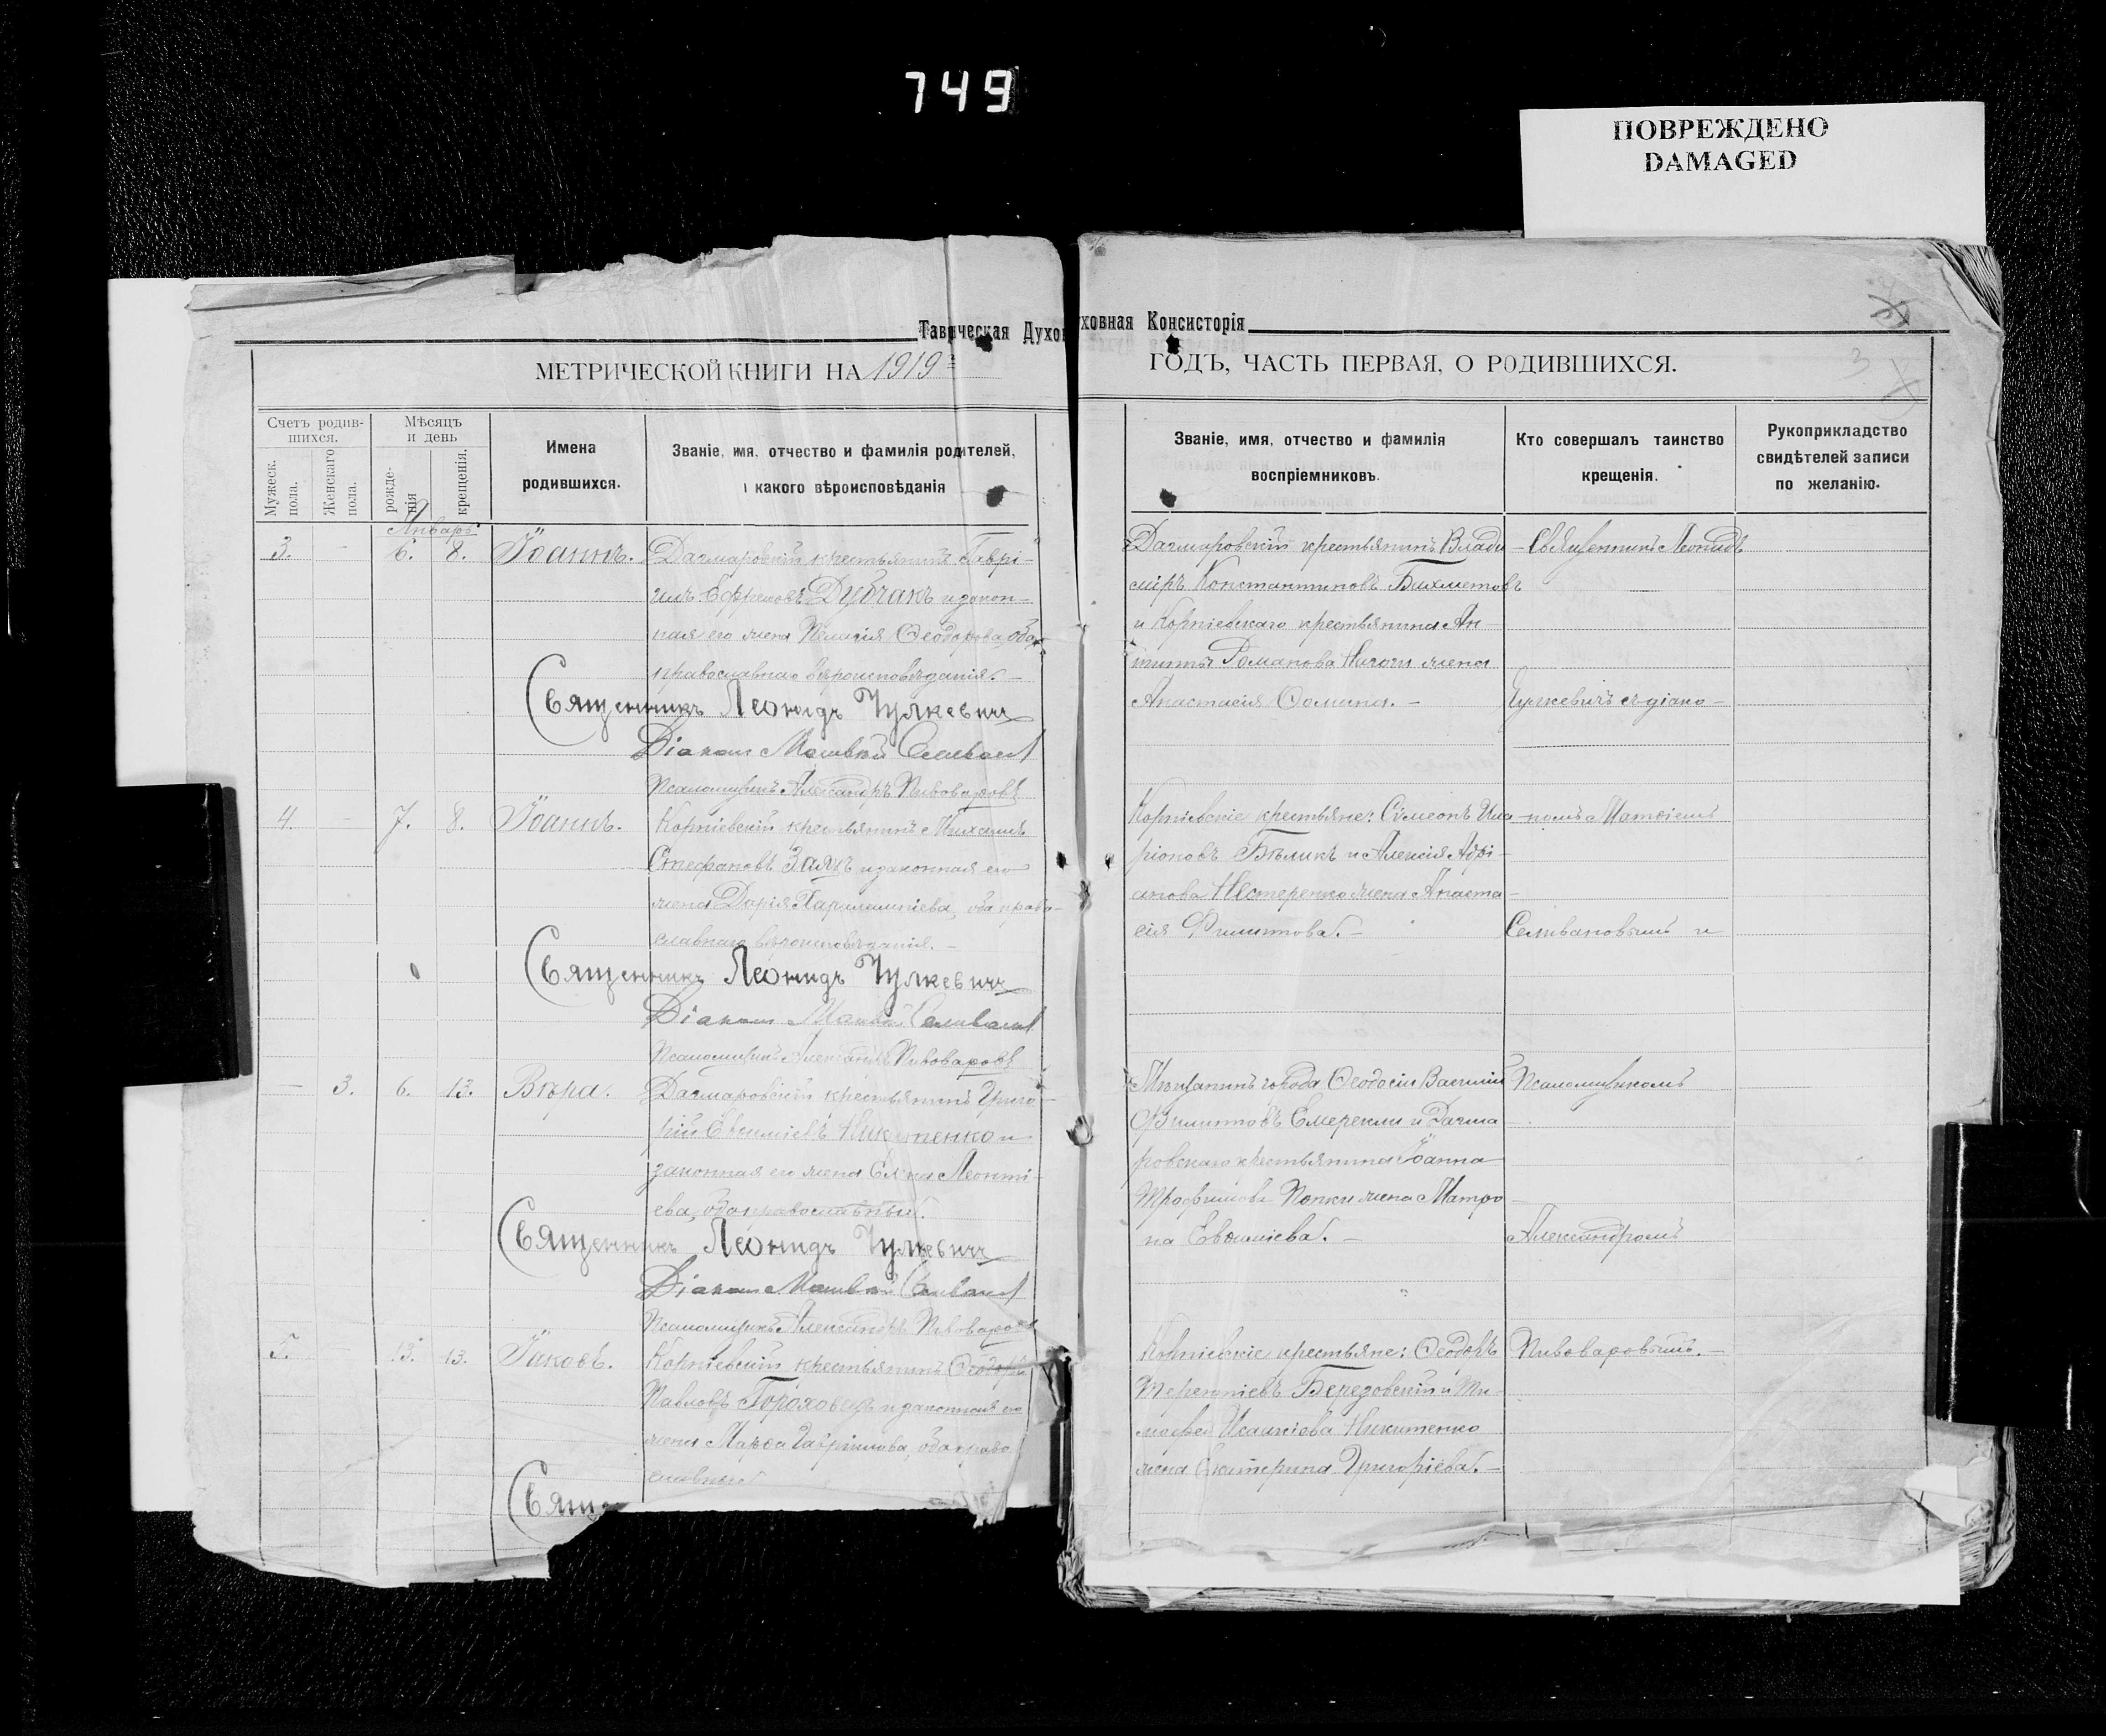 749
ПОВРЕЖДЕНО
DAMAGED
Таврическая Духовная Консисторія
МЕТРИЧЕСКОЙ КНИГИ НА 1919
ГОДЪ, ЧАСТЬ ПЕРВАЯ, О РОДИВШИХСЯ.
3
Счетъ родив-
шихся.
Мужеск. пола.
Женскаго пола.
Мѣсяцъ
и день
рожде-
нія
крещенія.
Имена
родившихся.
Званіе, имя, отчество и фамилія родителей,
и какого вѣроисповѣданія
Званіе, имя, отчество и фамилія
воспріемниковъ.
Кто совершалъ таинство
крещенія.
Рукоприкладство
свидѣтелей записи
по желанію.
Январь
3. - 6. 8. Іоаннъ.
Дагмаровскій крестьянинъ Гаврі-
илъ Ефремовъ Дубчакъ и закон-
ная его жена Пелагія Ѳеодорова, оба
православнаго вѣроисповѣданія. -
Священникъ Леонидъ Чулкевичъ
Діаконъ Матвей Селиванов
Псаломщикъ Александръ Пивоваровъ
Дагмаровскій крестьянинъ Влади-
міръ Константиновъ Бихметовъ
и Корніевскаго крестьянина Ан-
Романова жена
Анастасія Ѳомина. -
Священникъ Леонидъ
Чулкевичъ съ діако-
4. - 7. 8. Іоаннъ.
Корніевскій крестьянинъ Михаилъ
Стефановъ Заякъ и законная его
жена Дарія Харалампіева, оба право-
славнаго вѣроисповѣданія. -
Священникъ Леонидъ Чулкевичъ
Діаконъ Матвей Селиванов
Псаломщикъ Александръ Пивоваровъ
Корніевскіе крестьяне: Сѵмеонъ Ила-
ріоновъ Бѣликъ и Алексія Адрі-
анова Нестеренко жена Анаста-
сія Филиппова. -
номъ Матѳіемъ
Селивановымъ и
- 3. 6. 13. Вѣра.
Дагмаровскій крестьянинъ Григо-
рій Евѳиміевъ Никитенко и
законная его жена Елена Леонті-
ева, оба православные.
Священникъ Леонидъ Чулкевичъ
Діаконъ Матвей Селиванов
Псаломщикъ Александръ Пивоваровъ
Мѣщанинъ города Ѳеодосіи Василій
Филипповъ Емерекли и Дагма-
ровскаго крестьянина Іоанна
Трофимова Попки жена Матро-
на Евѳиміева. -
Псаломщикомъ
Александромъ
5. - 13. 13. Іаковъ.
Корніевскій крестьянинъ Ѳеодоръ
Павловъ и законная его
жена Марѳа Гавріилова, оба право-
славные
Свящ
Корніевскіе крестьяне: Ѳеодоръ
Терентіевъ Березовскій и Ти-
моѳея Исаакіева Никитенко
жена Екатерина Григоріева. -
Пивоваровымъ. -